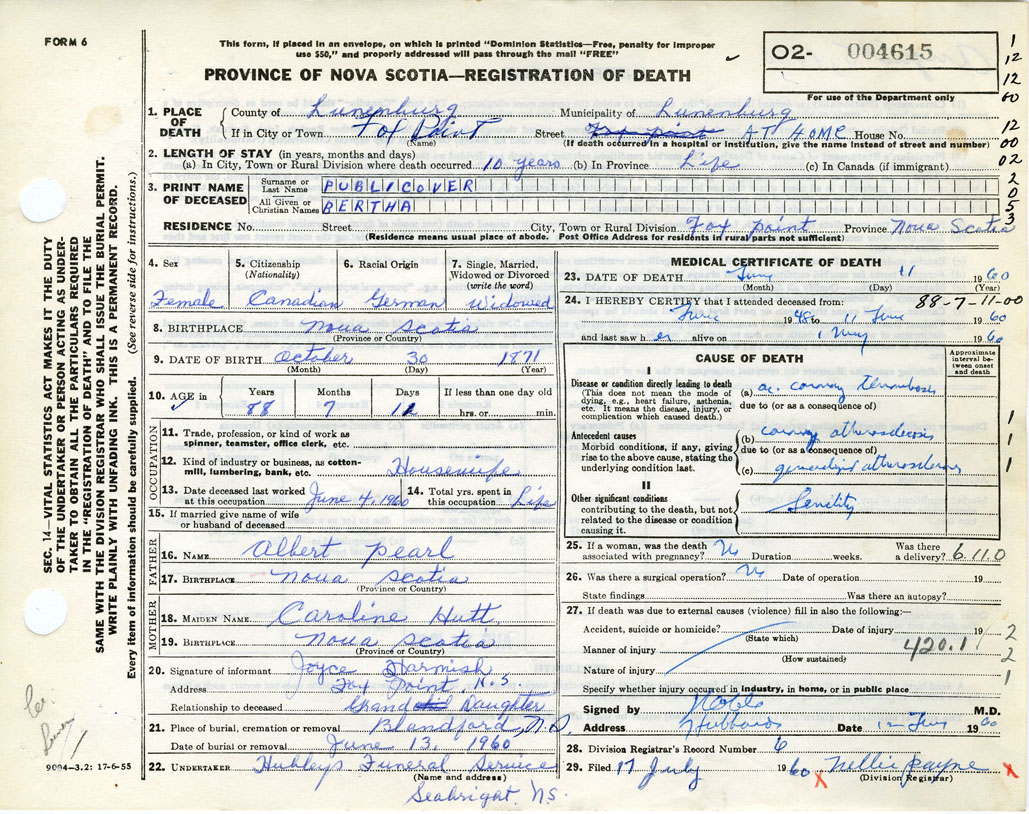 FORM 6
This form, if placed in an envelope, on which is printed "Dominion Statistics—Free, penalty for improper
use $50," and properly addressed will pass through the mail "FREE"
O2- 004615
For use of the Department only
PROVINCE OF NOVA SCOTIA—REGISTRATION OF DEATH
1
12
12
60
12
00
02
2
0
5
3
1. PLACE OF DEATH County of Lunenburg Municipality of Lunenburg
If in City or Town Fox Point Street Fox point AT HOME House No.
(Name) (If death occurred in a hospital or Institution, give the name instead of street and number)
2. LENGTH OF STAY (in years, months and days)
(a) In City, Town or Rural Division where death occurred 10 years (b) In Province Life (c) In Canada (if immigrant)
3. PRINT NAME OF DECEASED Surname or Last Name PUBLICOVER
All Given or Christian Names BERTHA
RESIDENCE No. Street City, Town or Rural Division Fox point Province Nova Scotia
(Residence means usual place of abode. Post Office Address for residents in rural parts not sufficient)
4. Sex 5. Citizenship (Nationality) 6. Racial Origin 7. Single, Married, Widowed or Divorced (write the word)
Female Canadian German Widowed
8. BIRTHPLACE Nova Scotia
(Province or Country)
9. DATE OF BIRTH October 30 1871
(Month) (Day) (Year)
10. AGE in Years Months Days If less than one day old
88 7 11 hrs. or min.
OCCUPATION
11. Trade, profession, or kind of work as
spinner, teamster, office clerk, etc.
12. Kind of industry or business, as cotton-
mill, lumbering, bank, etc. Housewife
13. Date deceased last worked at this occupation June 4, 1960 14. Total yrs. spent in this occupation Life
15. If married give name of wife
or husband of deceased
FATHER
16. NAME Albert Pearl
17. BIRTHPLACE Nova Scotia
(Province or Country)
MOTHER
18. MAIDEN NAME Caroline Hutt
19. BIRTHPLACE Nova Scotia
(Province or Country)
20. Signature of informant Joyce Harmish
Address Fox Point, N.S.
Relationship to deceased Grand Daughter
21. Place of burial, cremation or removal Blandford, N.S.
Date of burial or removal June 13, 1960
22. UNDERTAKER Hubley's Funeral Service
(Name and address)
Seabright, N.S.
MEDICAL CERTIFICATE OF DEATH
23. DATE OF DEATH June 11 1960
(Month) (Day) (Year)
24. I HEREBY CERTIFY that I attended deceased from: 88-7-11-00
June 1948 to 11 June 1960
and last saw her alive on 1 May 1960
CAUSE OF DEATH
Approximate interval between onset and death
I
Disease or condition directly leading to death
(This does not mean the mode of
dying, e.g., heart failure, asthenia,
etc. It means the disease, injury, or
complication which caused death.)
(a) ac. coronary thrombosis
due to (or as a consequence of)
Antecedent causes
Morbid conditions, if any, giving
rise to the above cause, stating the
underlying condition last.
(b) coronary atherosclerosis
due to (or as a consequence of)
(c) generalized atherosclerosis
1
1
1
II
Other significant conditions
contributing to the death, but not
related to the disease or condition
causing it.
Senility
25. If a woman, was the death associated with pregnancy? No Duration weeks. Was there a delivery? 6.11.0
26. Was there a surgical operation? No Date of operation 19
State findings Was there an autopsy?
27. If death was due to external causes (violence) fill in also the following:—
Accident, suicide or homicide? Date of injury 19 2
(State which)
Manner of injury 420.1 2
(How sustained)
Nature of injury 1
Specify whether injury occurred in industry, in home, or in public place
Signed by M.D.
Address Hubbards Date 12 June 1960
28. Division Registrar's Record Number 6
29. Filed 17 July 1960 Nellie Payne
(Division Registrar)
SEC. 14—VITAL STATISTICS ACT MAKES IT THE DUTY
OF THE UNDERTAKER OR PERSON ACTING AS UNDER-
TAKER TO OBTAIN ALL THE PARTICULARS REQUIRED
IN THE "REGISTRATION OF DEATH" AND TO FILE THE
SAME WITH THE DIVISION REGISTRAR WHO SHALL ISSUE THE BURIAL PERMIT.
WRITE PLAINLY WITH UNFADING INK. THIS IS A PERMANENT RECORD.
Every item of information should be carefully supplied. (See reverse side for instructions.)
9094—3.2: 17-6-55